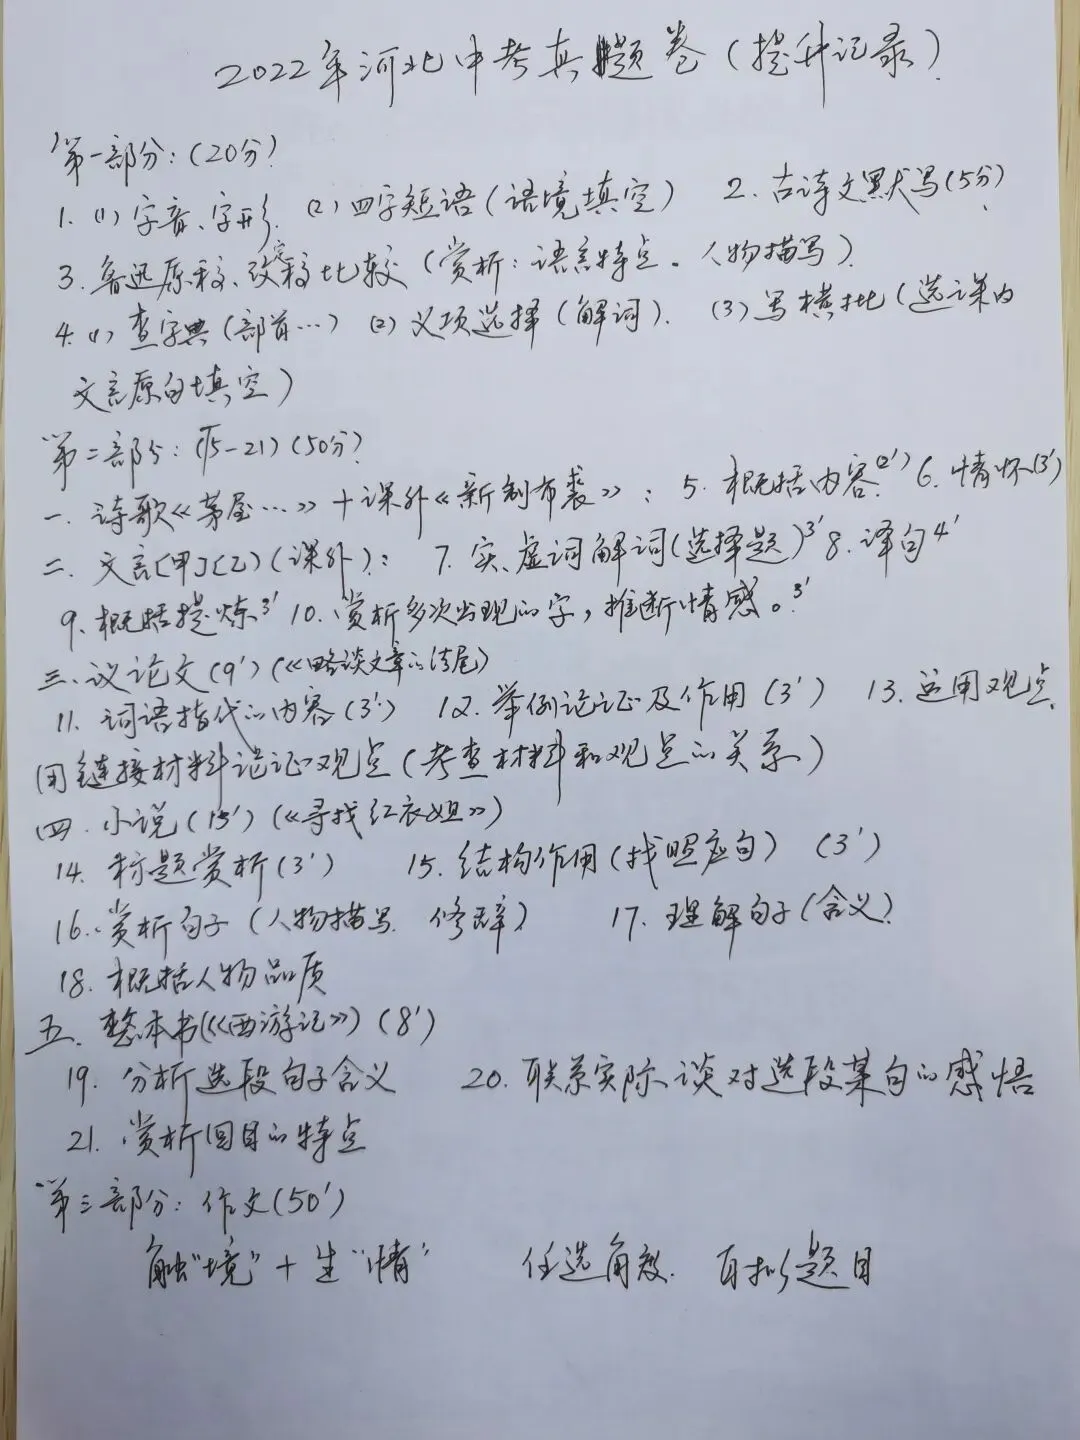 2022年河北中考真题卷(提升记录).
第一部分:(20分)
1. (1) 字音、字形. (2) 四字短语(语境填空) 2. 古诗文默写(5分)
3. 鲁迅原稿、改定稿比较(赏析:语言特点。人物描写).
4. (1) 查字典(部首…) (2) 义项选择(解词). (3) 写横批(选课内
文言原句填空)
第二部分:(5-21)(50分)
一. 诗歌《茅屋…》+课外《新制布裘》: 5. 概括内容(2') 6. 情怀(3')
二. 文言[甲][乙](课外): 7. 实、虚词解词(选择题)3' 8. 译句4'
9. 概括提炼3' 10. 赏析多次出现的字,推断情感。3'
三. 议论文(9')(《略谈文章的结尾》)
11. 词语指代的内容(3') 12. 举例论证及作用(3') 13. 运用观点.
用链接材料论证观点(考查材料和观点的关系)
四. 小说(15')(《寻找红衣姐》)
14. 标题赏析(3') 15. 结构作用(找照应句) (3')
16. 赏析句子(人物描写. 修辞) 17. 理解句子(含义)
18. 概括人物品质
五. 整本书(《西游记》)(8')
19. 分析选段句子含义 20. 联系实际谈对选段某句的感悟
21. 赏析回目的特点
第三部分:作文(50')
触"境"+生"情" 任选角度. 自拟题目